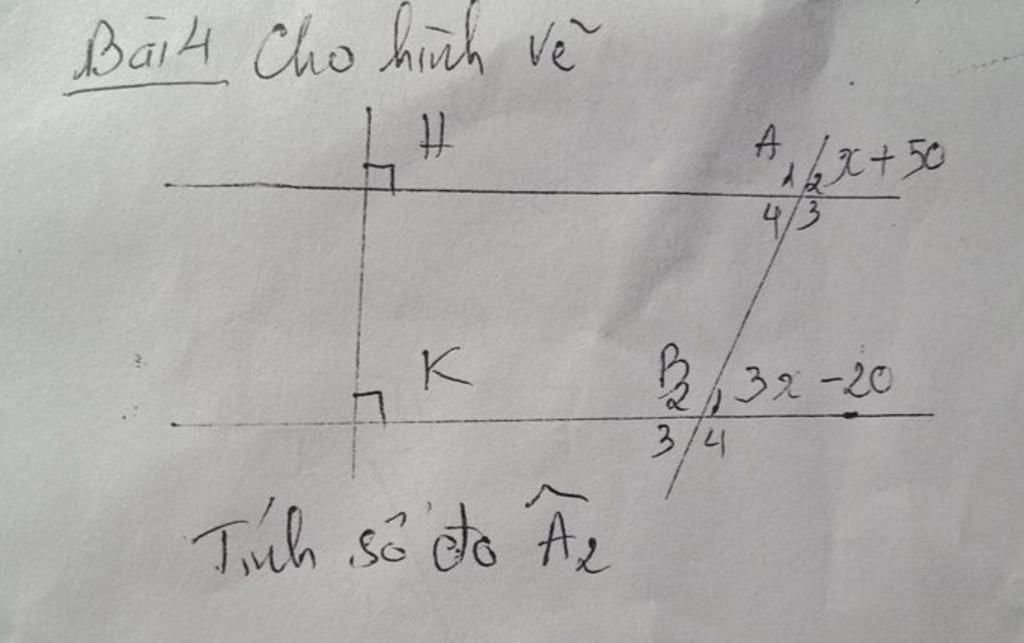 Bài 4 Cho hình vẽ
H
A 1 2 x + 50
4 3
K
B 2 1 3x - 20
3 4
Tính số đo Â2